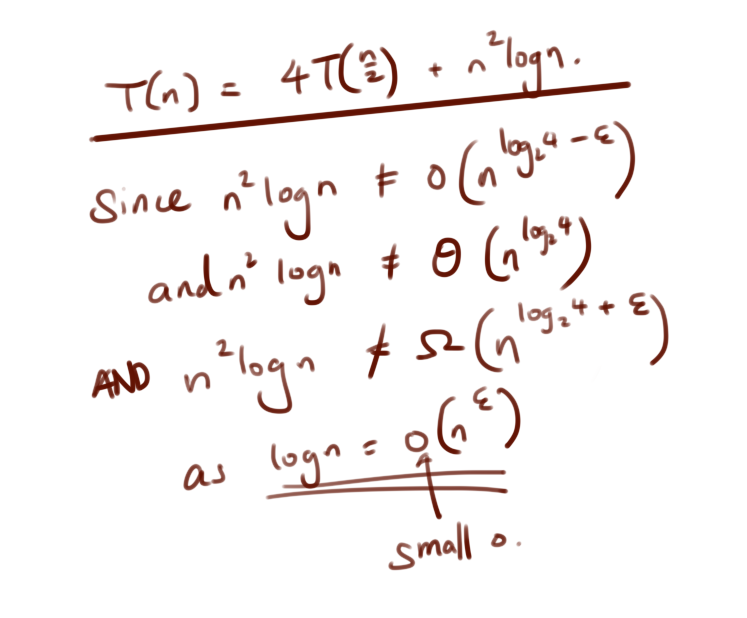 T(n) = 4T(n/2) + n² log n.
Since n² log n ≠ O(n^(log₂4 - ε))
and n² log n ≠ Θ(n^(log₂4))
AND n² log n ≠ Ω(n^(log₂4 + ε))
as log n = o(n^ε)
small o.